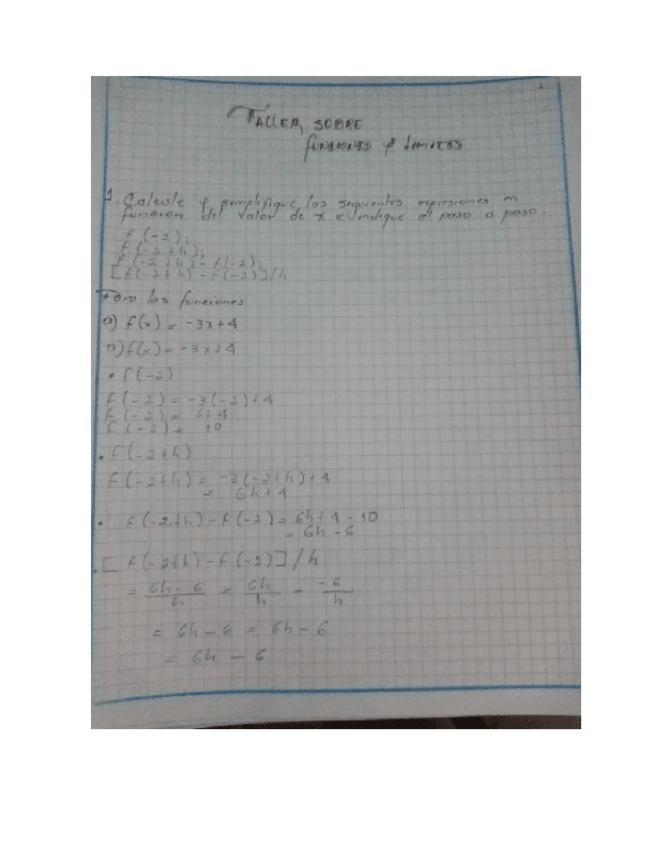 1
TALLER SOBRE
funciones y limites
1. Calcule y semplifique las siguientes expresiones en
funcion del valor de x e indique el paso a paso.
f(-2);
f(-2+h);
f(-2+h) - f(-2);
[f(-2+h) - f(-2)]/h
Para las funciones
a) f(x) = -3x+4
a) f(x) = -3x+4
• f(-2)
f(-2) = -3(-2)+4
f(-2) = 6+4
f(-2) = 10
• f(-2+h)
f(-2+h) = -3(-2+h)+4
= 6h+4
• f(-2+h) - f(-2) = 6h+4-10
= 6h-6
• [f(-2+h) - f(-2)]/h
= 6h-6/h = 6h/h - -6/h
= 6h-6 = 6h-6
= 6h - 6